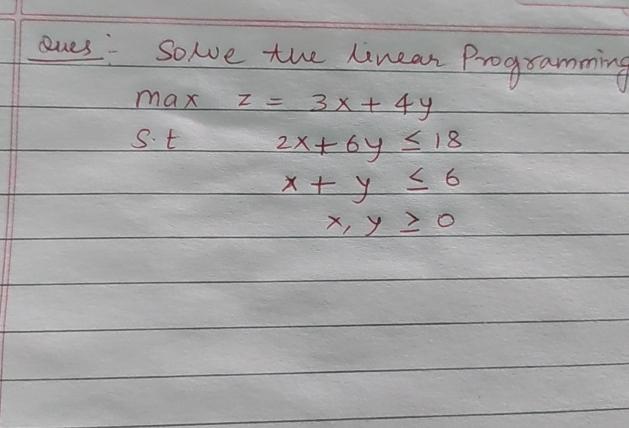 Ques :- Solve the linear Programming
max z = 3x + 4y
S.t 2x + 6y ≤ 18
x + y ≤ 6
x, y ≥ 0